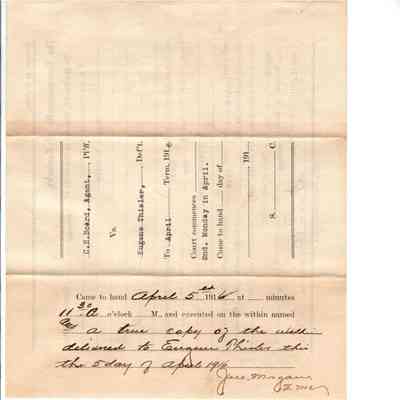 C.E.Board, Agent, Pl'ff.
Vs.
Eugene Thisler, Def't.
To April Term, 191
Court commences
2nd. Monday in April.
Came to hand day of
191
S. C.
Came to hand April 5 1916 at minutes
11 30 A o'clock M., and executed on the within named
a true copy of the
delivered to Eugene Thisler this
the 5 day of April 1916